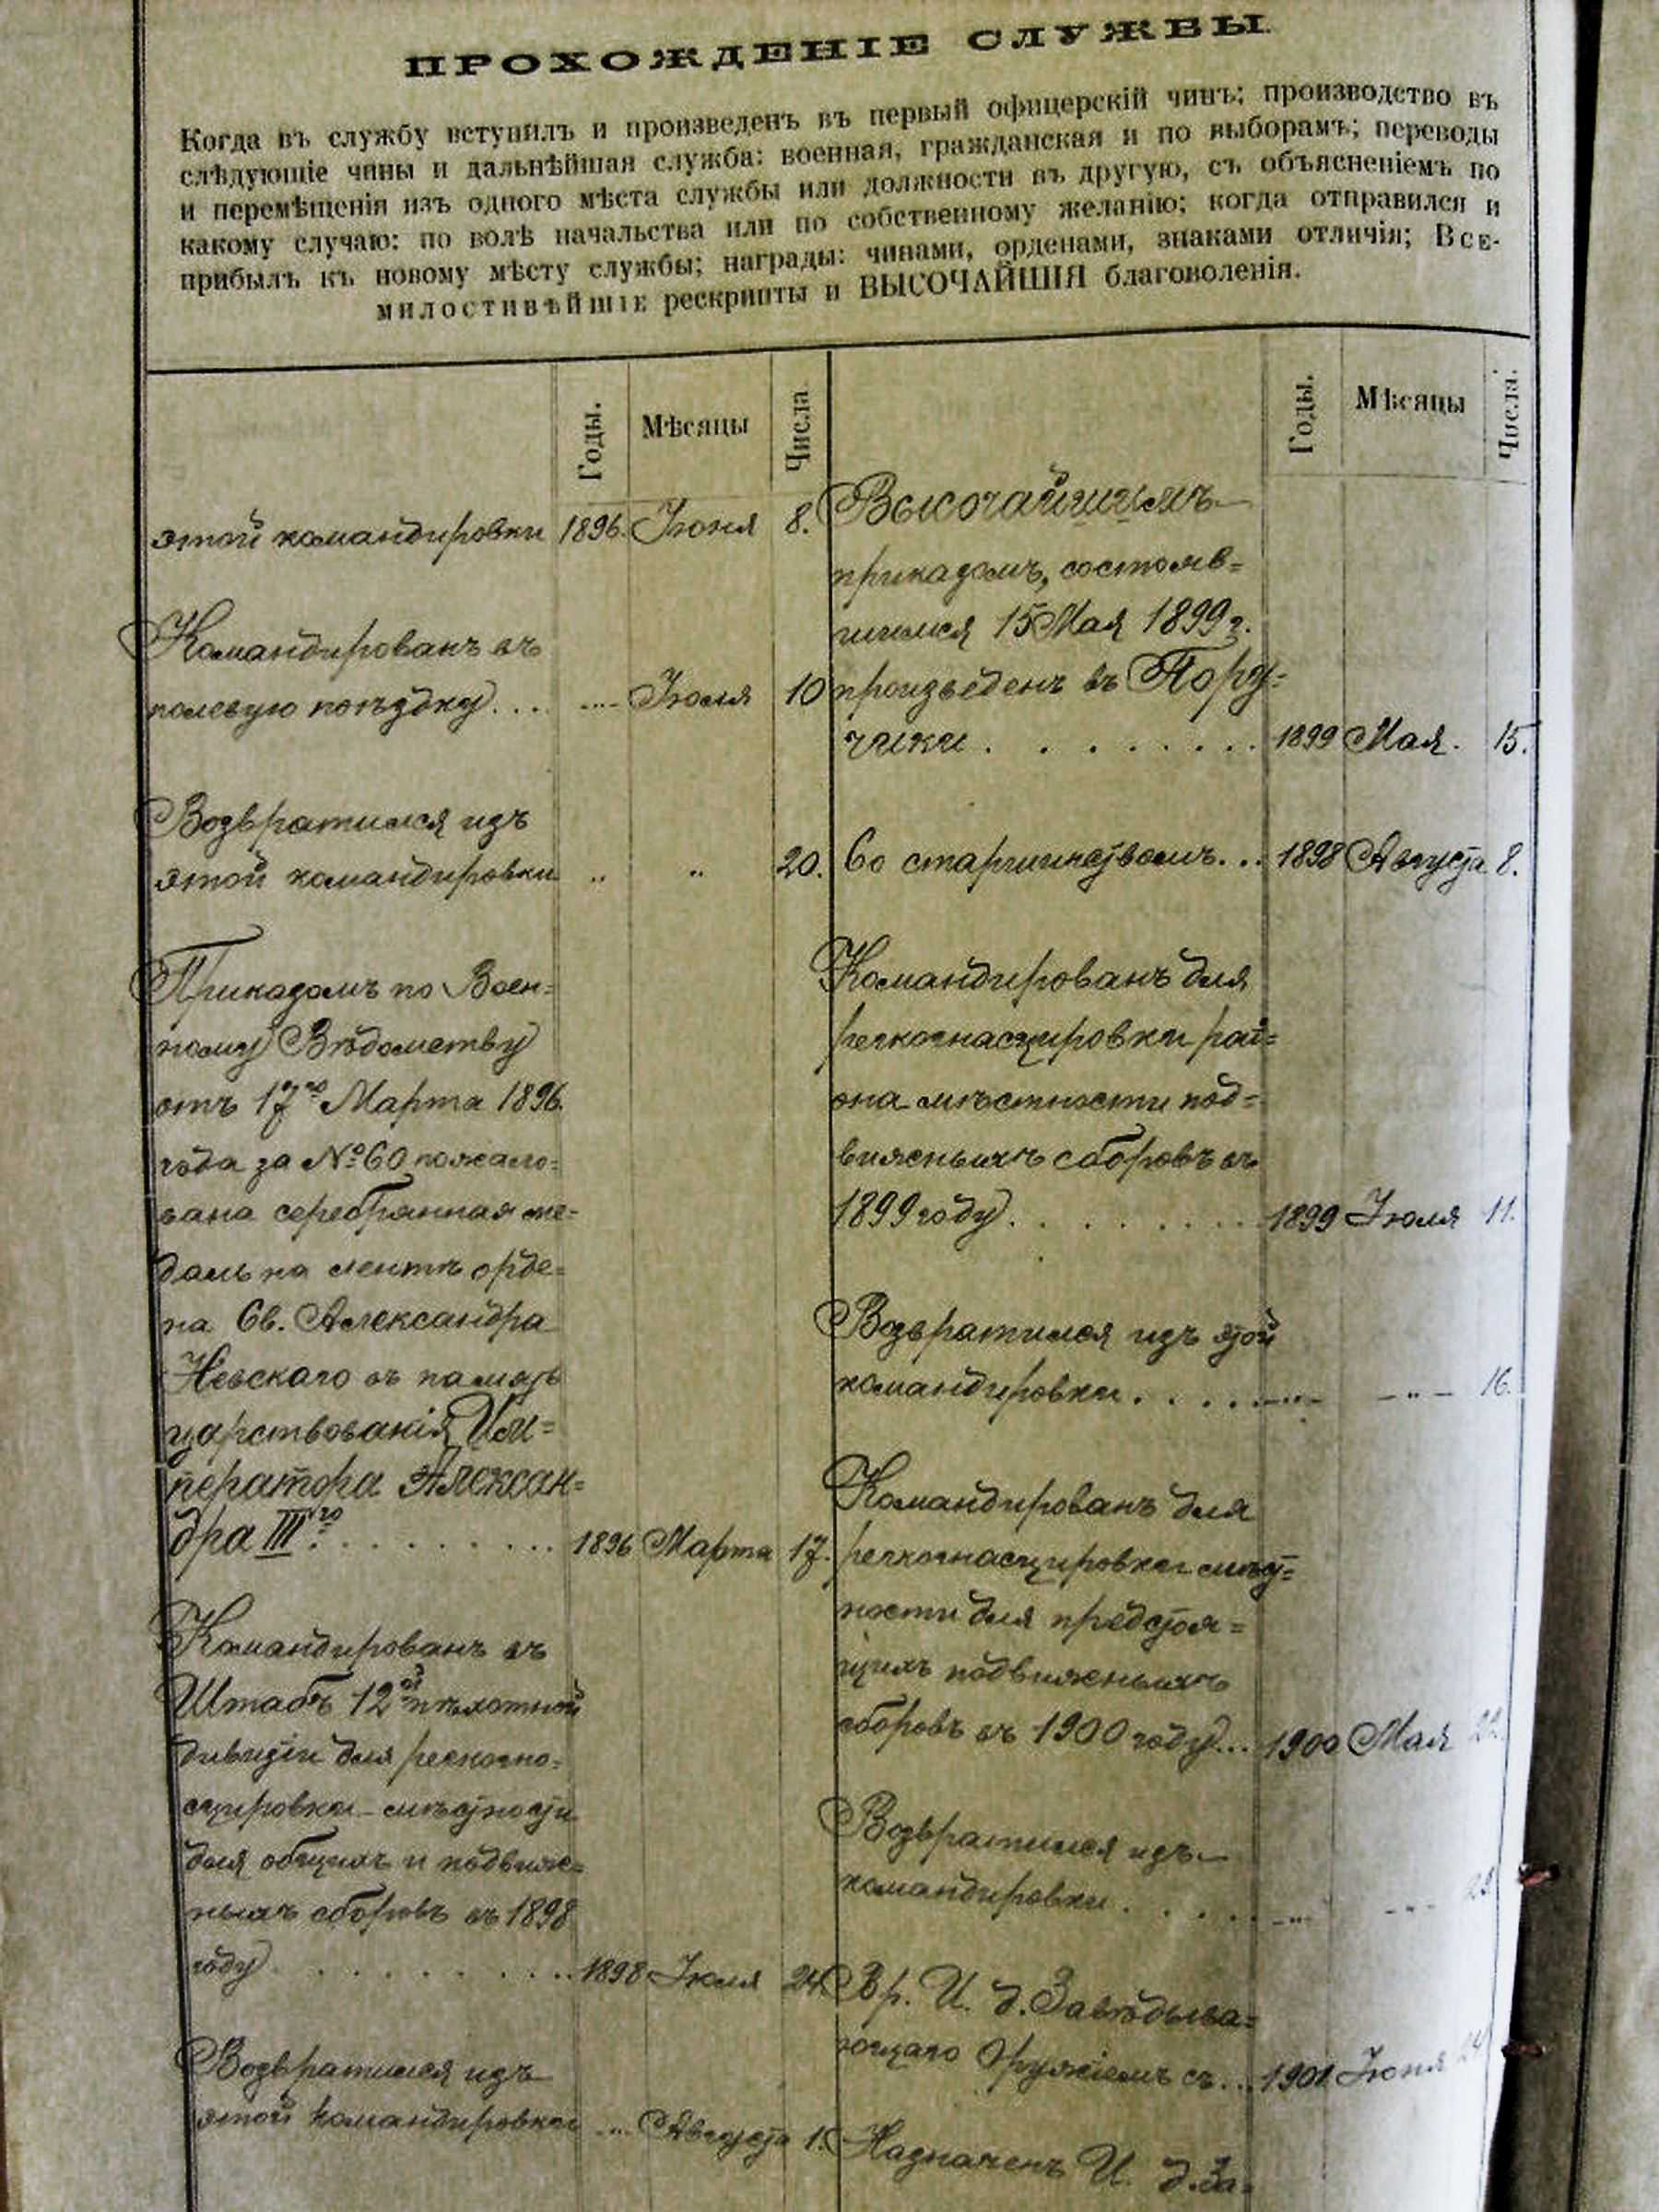 ПРОХОЖДЕНІЕ СЛУЖБЫ
Когда въ службу вступилъ и произведенъ въ первый офицерскій чинъ; производство въ
слѣдующіе чины и дальнѣйшая служба: военная, гражданская и по выборамъ; переводы
и перемѣщенія изъ одного мѣста службы или должности въ другую, съ объясненіемъ по
какому случаю: по волѣ начальства или по собственному желанію; когда отправился и
прибылъ къ новому мѣсту службы; награды: чинами, орденами, знаками отличія; Все-
милостивѣйшіе рескрипты и ВЫСОЧАЙШІЯ благоволенія.
Годы. Мѣсяцы Числа
этой командировки 1896. Іюня 8.
Командированъ въ
полевую поѣздку... -..- Іюля 10
Возвратился изъ
этой командировки .. .. 20.
Приказомъ по Воен=
ному Вѣдомству
отъ 17го Марта 1896.
года за №60 пожало=
вана серебрянная ме=
даль на лентѣ орде=
на Св. Александра
Невскаго въ память
царствованія Им=
ператора Алексан=
дра III го. . . . . . . . . . 1896 Марта 17.
Командированъ въ
Штабъ 12ой пѣхотной
дивизіи для рекогно=
сцировки мѣстности
для общихъ и подвиж=
ныхъ сборовъ въ 1898
году . . . . . . . . . . 1898 Іюля 24.
Возвратился изъ
этой командировки -..- Августа 1.
Годы. Мѣсяцы Числа.
Высочайшимъ
приказомъ, состояв=
шимся 15 Мая 1899 г.
произведенъ въ Пору=
чики . . . . . . . . 1899 Мая. 15.
Со старшинствомъ... 1898 Августа 8.
Командированъ для
рекогнасцировки рай=
она мѣстности под=
вижныхъ сборовъ въ
1899 году. . . . . . . . 1899 Іюля 11.
Возвратился изъ этой
командировки. . . . . -..- -..- 16.
Командированъ для
рекогнасцировки мѣст=
ности для предстоя=
щихъ подвижныхъ
сборовъ въ 1900 году... 1900 Мая 22.
Возвратился изъ
командировки . . . . . -..- -..-
Вр. И. д. Завѣдыва=
ющаго Оружіемъ съ... 1901 Іюня 24
Назначенъ И. д. За=